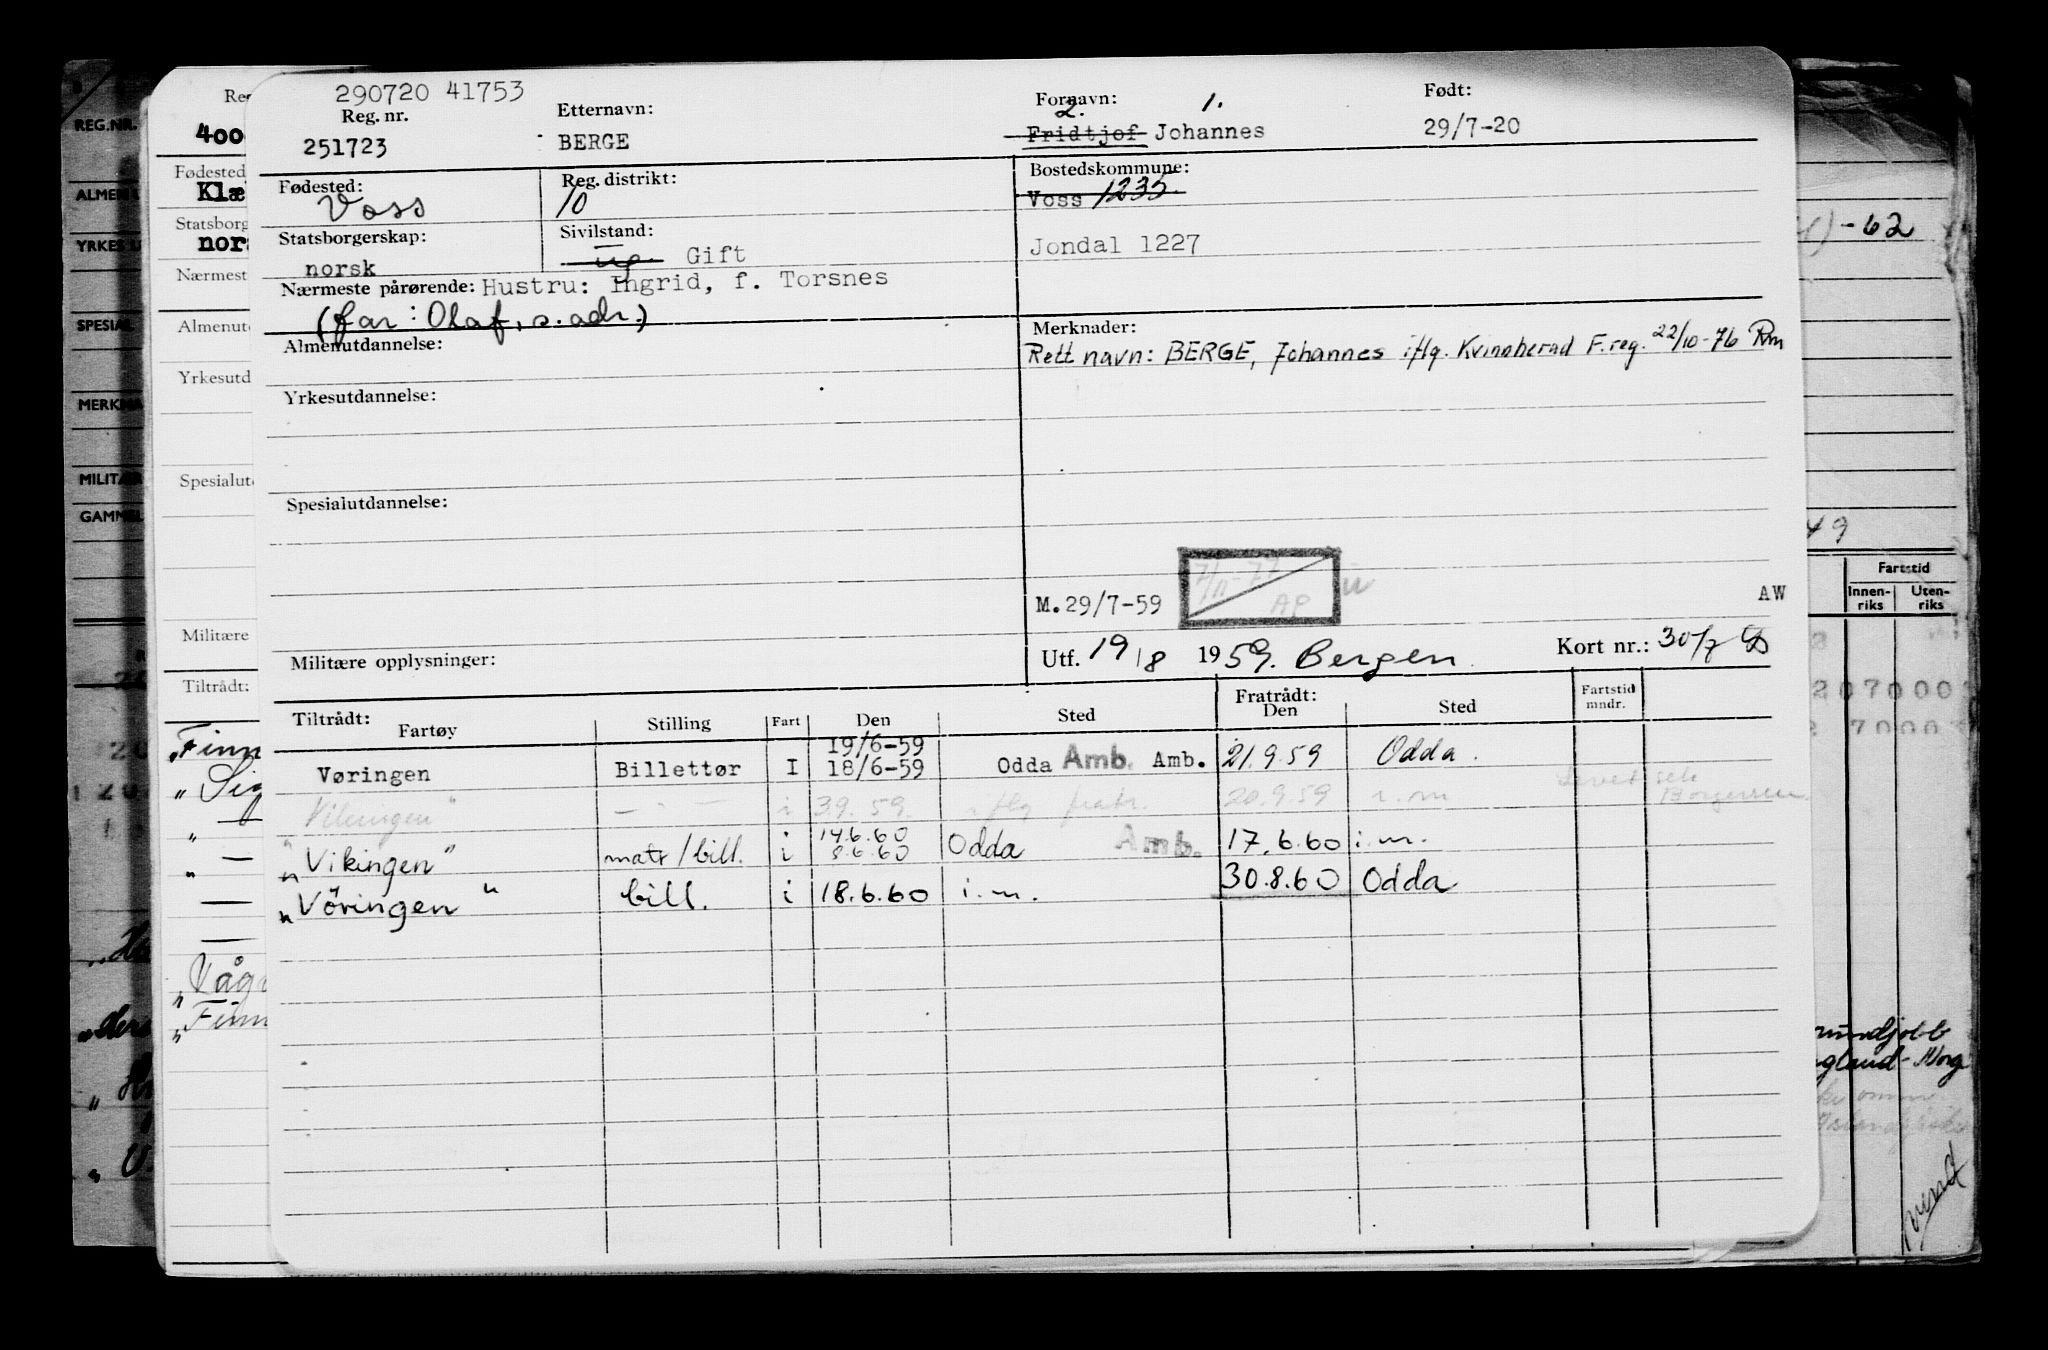 290720 41753
Reg. nr. Etternavn: Fornavn: Født:
2. 1.
251723 BERGE Fridtjof Johannes 29/7-20
Fødested: Reg. distrikt: Bostedskommune:
Voss 10 Voss 1235
Statsborgerskap: Sivilstand:
norsk ug. Gift Jondal 1227
Nærmeste pårørende: Hustru: Ingrid, f. Torsnes
(far: Olaf, s. adr.)
Almenutdannelse: Merknader:
Rett navn: BERGE, Johannes iflg. Kvinnherad F.reg. 22/10-76 Rm
Yrkesutdannelse:
Spesialutdannelse:
M. 29/7-59 7/11-77 AP AW
Militære opplysninger: Utf. 19/8 1959. Bergen Kort nr.: 30/7
Tiltrådt: Fratrådt: Fartstid mndr.
Fartøy Stilling Fart Den Sted Den Sted
19/6-59
Vøringen Billettør I 18/6-59 Odda Amb. Amb. 21.9.59 Odda.
Vikingen" — " — i 3.9.59. iflg fratr. 20.9.59 i.m
14.6.60
"Vikingen" matr/bill. i 8.6.60 Odda Amb. 17.6.60 i.m.
"Vöringen" bill. i 18.6.60 i.m. 30.8.60 Odda
REG.NR.
400
Fødested
Klæ
Statsborg
nors
Nærmest
Almenut
Yrkesutd
Spesialut
Militære
Tiltrådt:
"Finn
" Sig
"Våg
"Finn
YRKES
SPESIAL
MERKNA
MILITÆR
GAMMEL
-62
49
Fartstid
Innen-riks Uten-riks
207000
7000
gland-Norg